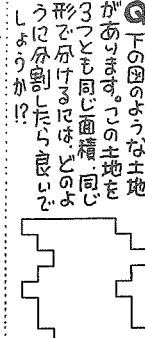 Q 下の図のような土地
があります。この土地を
3つとも同じ面積、同じ
形で分けるには、どのよ
うに分割したら良いで
しょうか!?